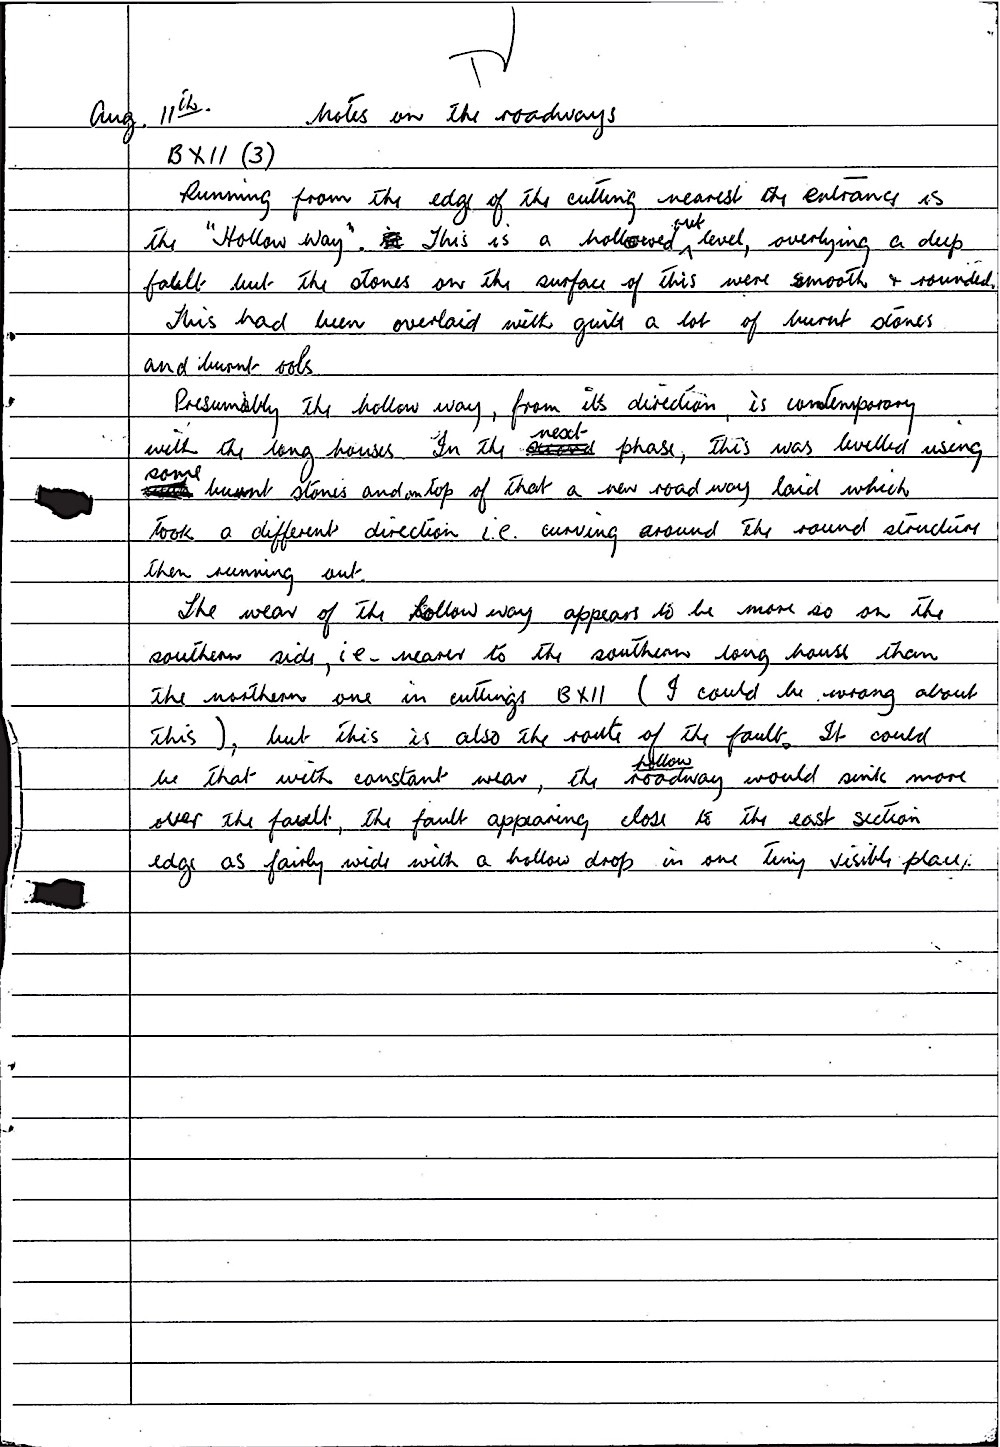 Aug. 11th. Notes on the roadways
BXII (3)
Running from the edge of the cutting nearest the entrance is
the "Hollow Way". This is a hollowed out level, overlying a deep
fault but the stones on the surface of this were smooth & rounded.
This had been overlaid with quite a lot of burnt stones
and burnt
Presumably the hollow way, from its direction, is contemporary
with the long houses. In the next phase, this was levelled using
some burnt stones and on top of that a new road way laid which
took a different direction i.e. curving around the round structure
then running out.
The wear of the hollow way appears to be more so on the
southern side, i.e. nearer to the southern long house than
the northern one in cuttings BXII (I could be wrong about
this), but this is also the route of the fault. It could
be that with constant wear, the hollow roadway would sink more
over the fault, the fault appearing close to the east section
edge as fairly wide with a hollow drop in one tiny visible place.